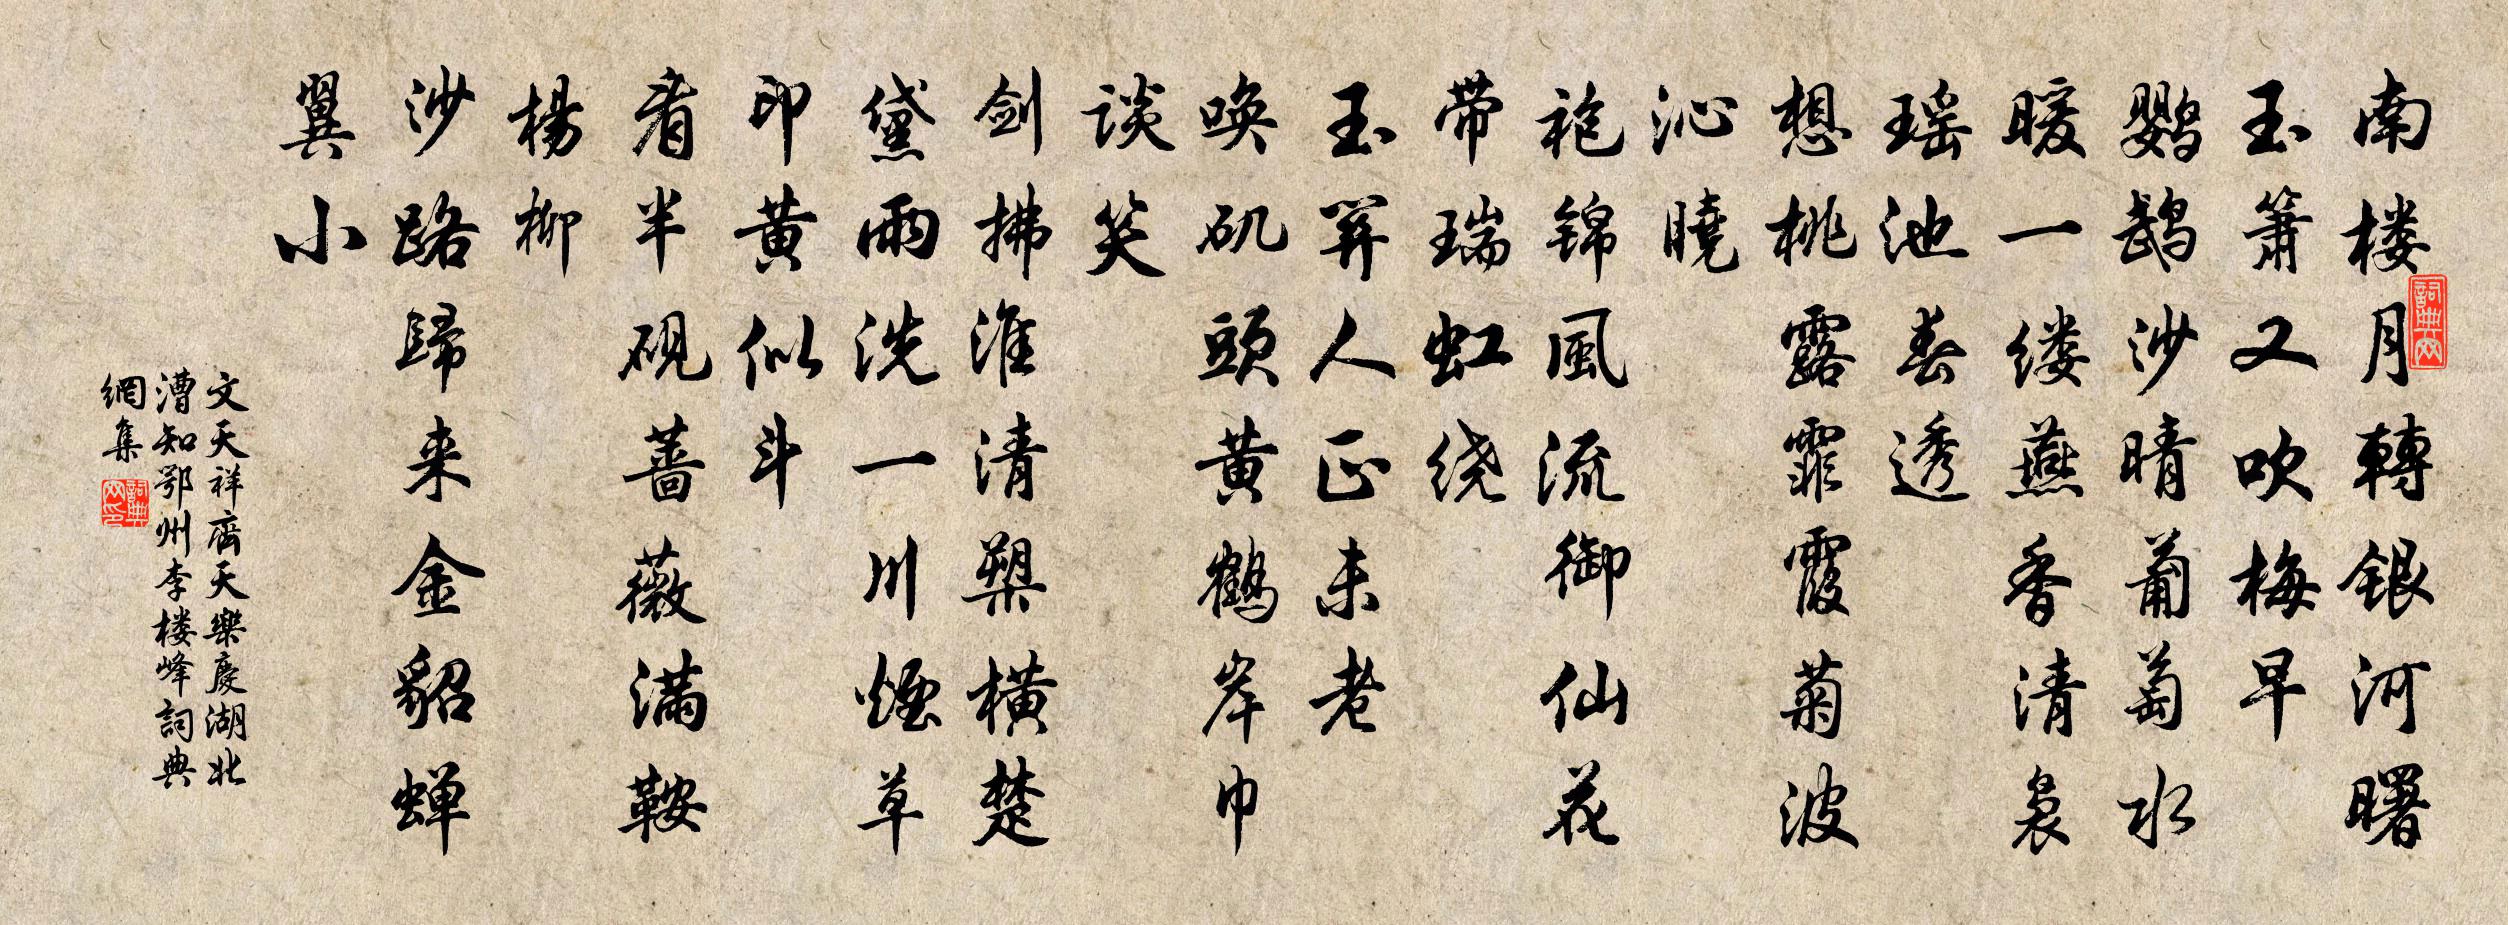 南楼月轉银河曙
玉箫又吹梅早
鹦鹉沙晴葡萄水
暖一缕燕香清袅
瑶池春透
想桃露霏霞菊波
沁曉
袍锦風流御仙花
带瑞虹绕
玉關人正未老
唤矶頭黄鹤岸巾
谈笑
剑拂淮清槊横楚
黛雨洗一川烟草
印黄似斗
看半砚蔷薇满鞍
楊柳
沙路歸来金貂蝉
翼小
文天祥齊天樂慶湖北
漕知鄂州李楼峰詞典
網集
詞典网
詞典网印